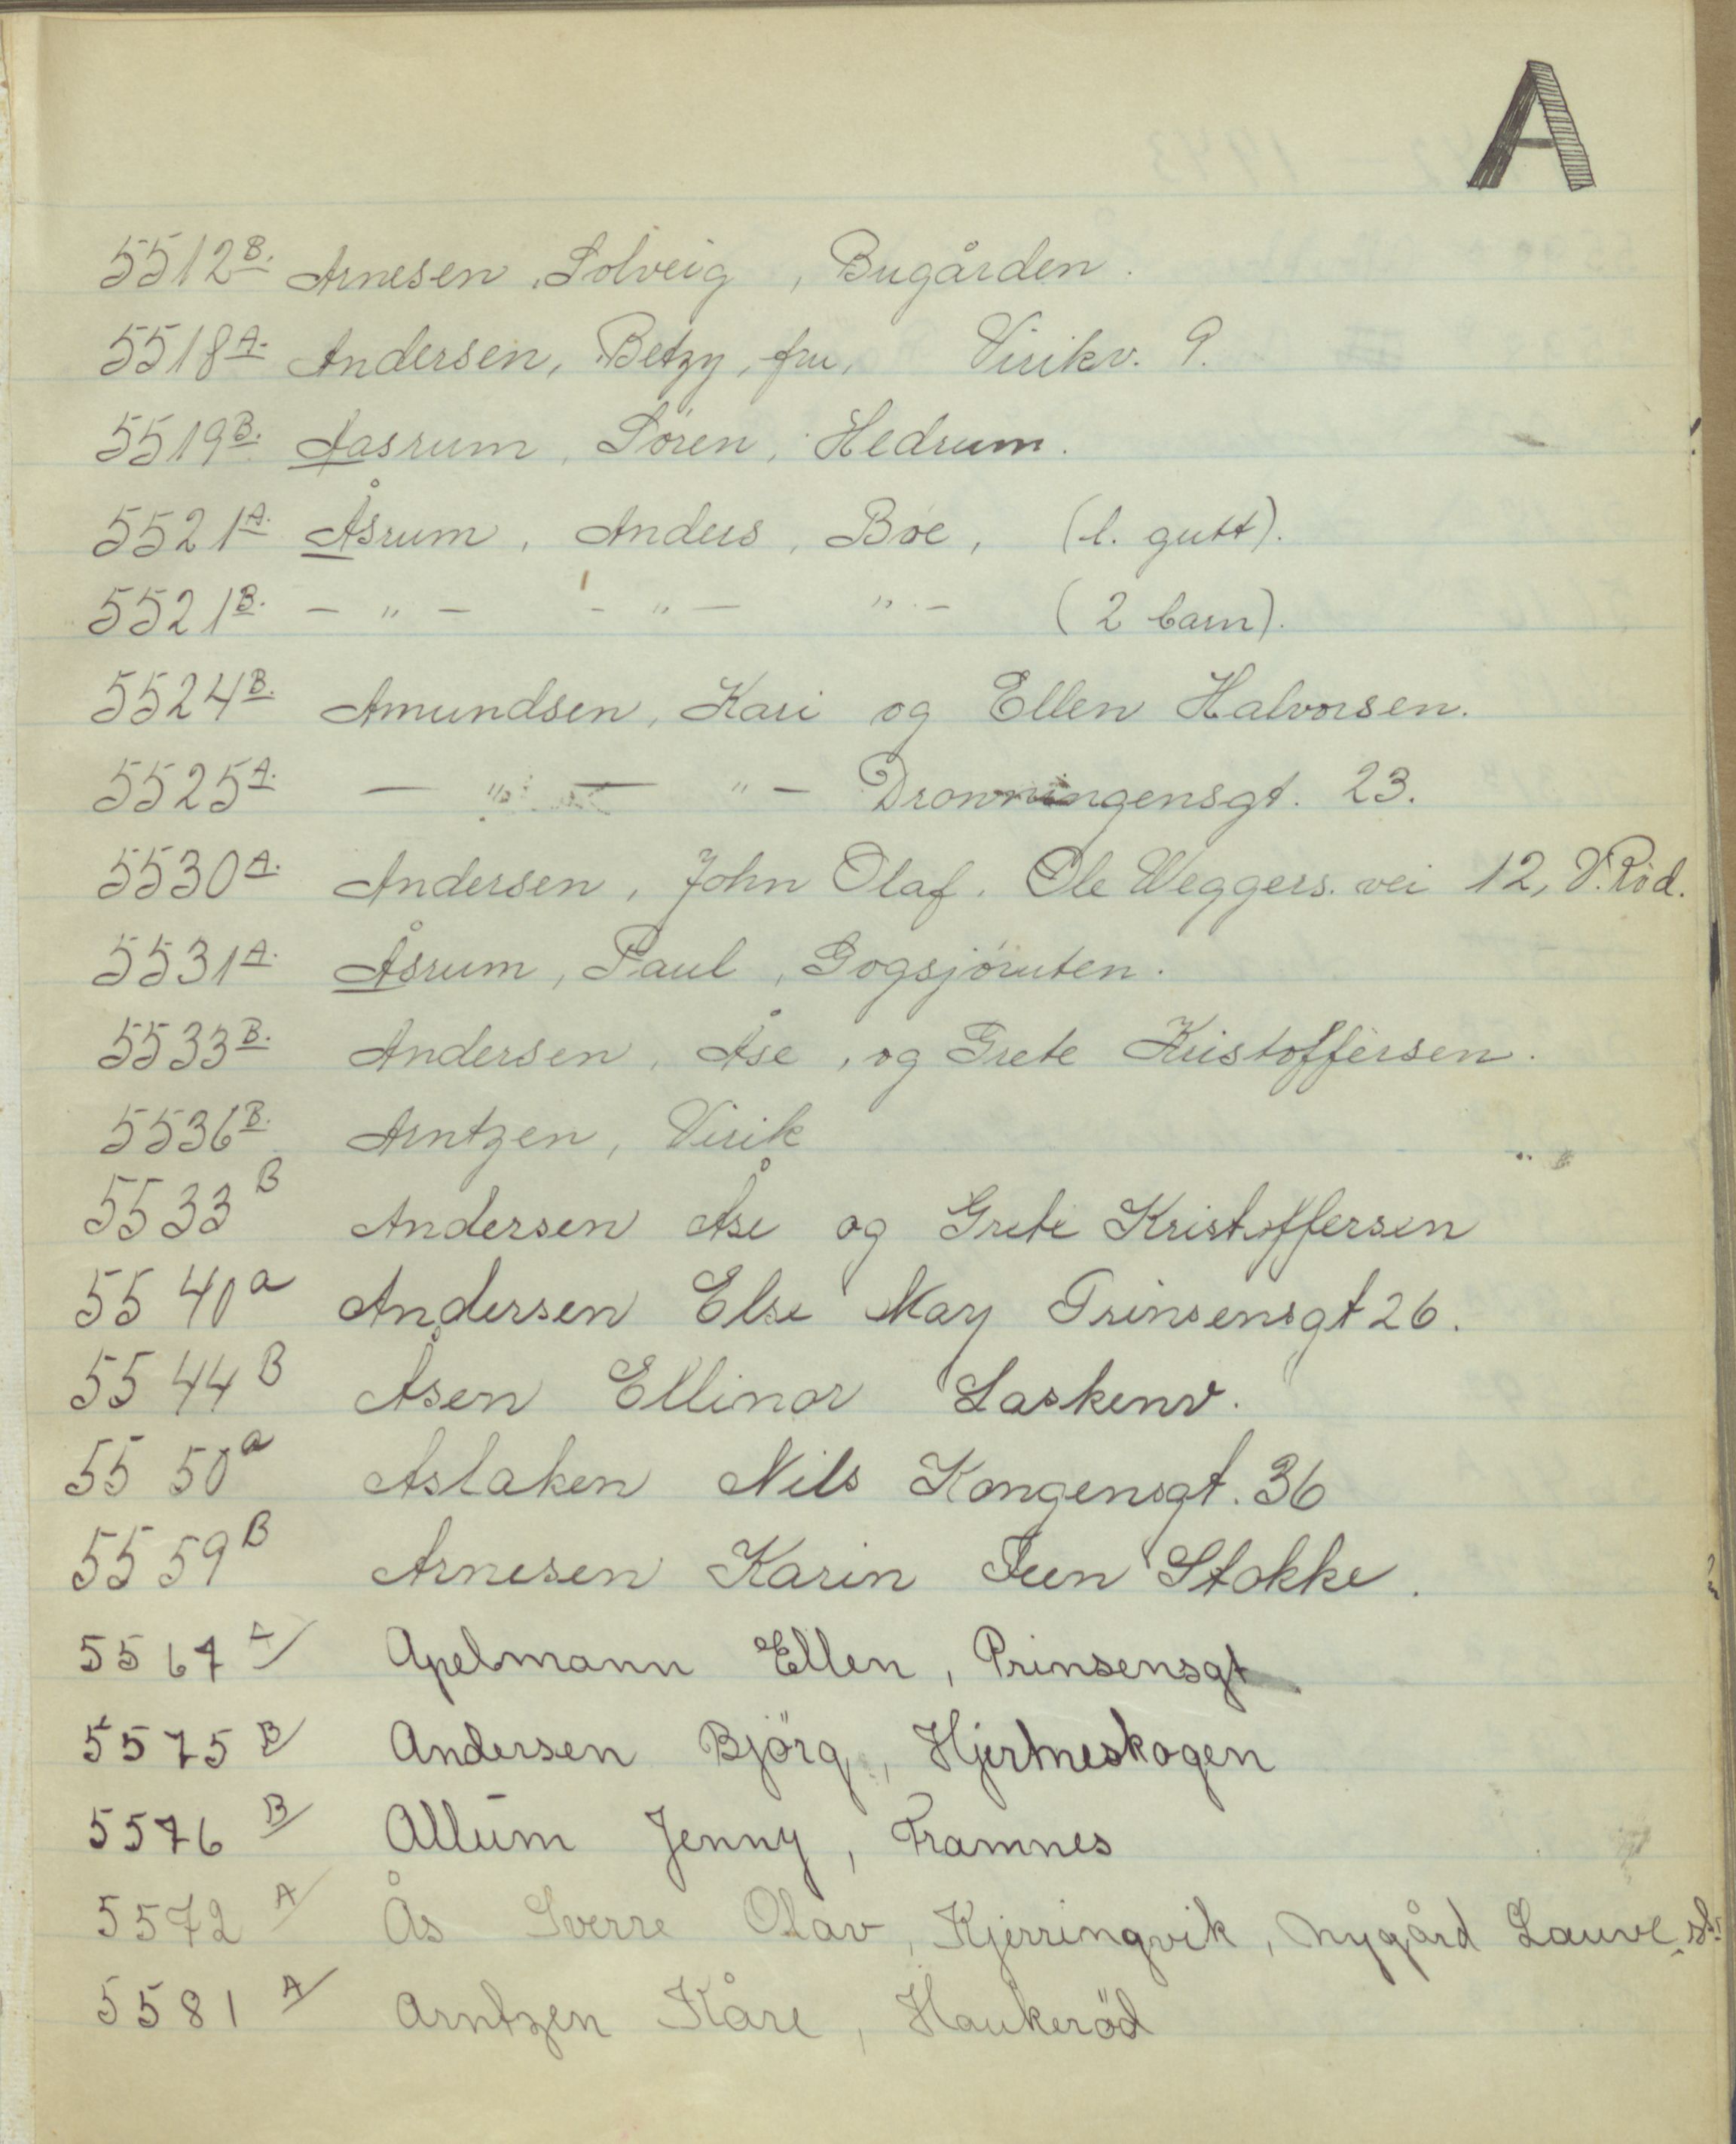 A
5512B. Arnesen, Solveig, Bugården.
5518A. Andersen, Betzy, fru, Virikv. 9.
5519B. Aasrum, Sören, Hedrum.
5521A. Åsrum, Anders, Bøe, (l. gutt).
5521B. - " - - " - " - (2 barn).
5524B. Amundsen, Kari og Ellen Halvorsen.
5525A. - " - " - Dronningensgt. 23.
5530A. Andersen, John Olaf. Ole Weggers. vei 12, V. Röd.
5531A. Åsrum, Paul, Gogsjöruten.
5533B. Andersen, Åse, og Grete Kristoffersen.
5536B. Arntzen, Virik
5533B Andersen Åse og Grete Kristoffersen
5540a Andersen Else May Prinsensgt 26.
5544B Åsen Ellinor Laskenv.
5550a Aslaken Nils Kongensgt. 36
5559B Arnesen Karin Feen Stokke.
5567A/ Apelmann Ellen, Prinsensgt
5575B/ Andersen Björg, Hjertneskogen
5576B/ Allum Jenny, Framnes
5572A/ Ås Sverre Olav, Kjerringvik, Nygård Lauve st.
5581A/ Arntzen Kåre, Haukeröd